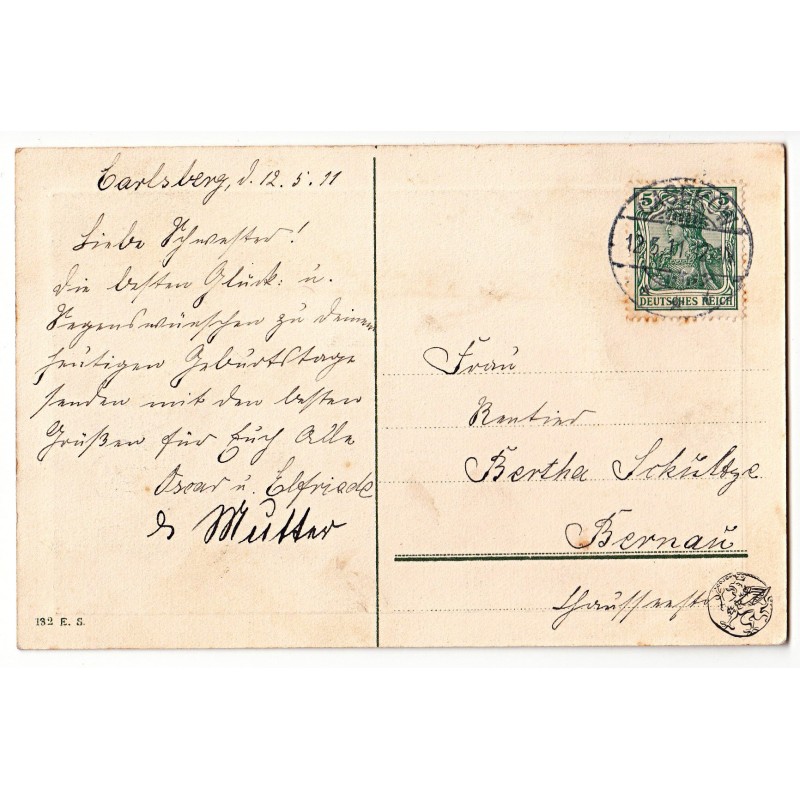 Carlsberg, d. 12.5.11
Liebe Schwester!
die besten Glück- u.
Segenswünschen zu deinem
heutigen Geburtstage
senden mit den besten
Grüßen für Euch Alle
Oscar u. Elfriede
& Mutter
132 E. S.
5 5
12.5.11
DEUTSCHES REICH
Frau
Rentier
Bertha Schultze
Bernau
Chausseestr